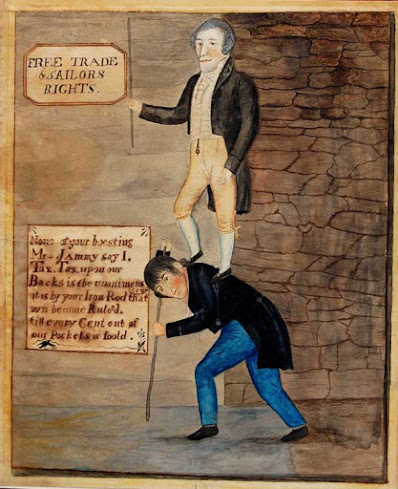 FREE TRADE
& SAILORS
RIGHTS.
None of your boesting
Mr. Jammy say I.
Tax. Tax. upon our
Backs is the
it is by your Iron Rod that
we become Ruled.
till every Cent out of
our Pockets is foold.